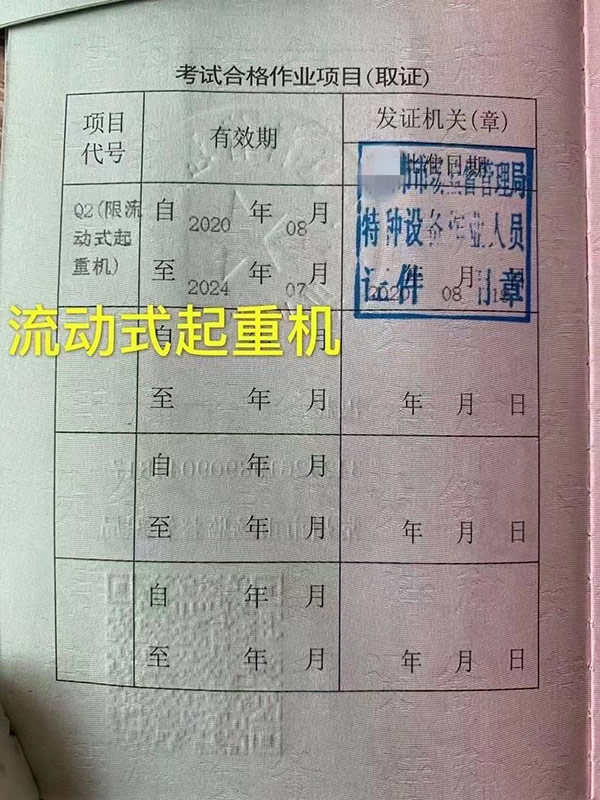 考试合格作业项目(取证)
项目
代号
有效期
发证机关(章)
批准日期
市市场监督管理局
特种设备作业人员
证件专用章
Q2(限流
动式起
重机)
自 2020 年 08 月
至 2024 年 07 月
2020 年 08 月
流动式起重机
自 年 月
至 年 月
年 月 日
自 年 月
至 年 月
年 月 日
自 年 月
至 年 月
年 月 日